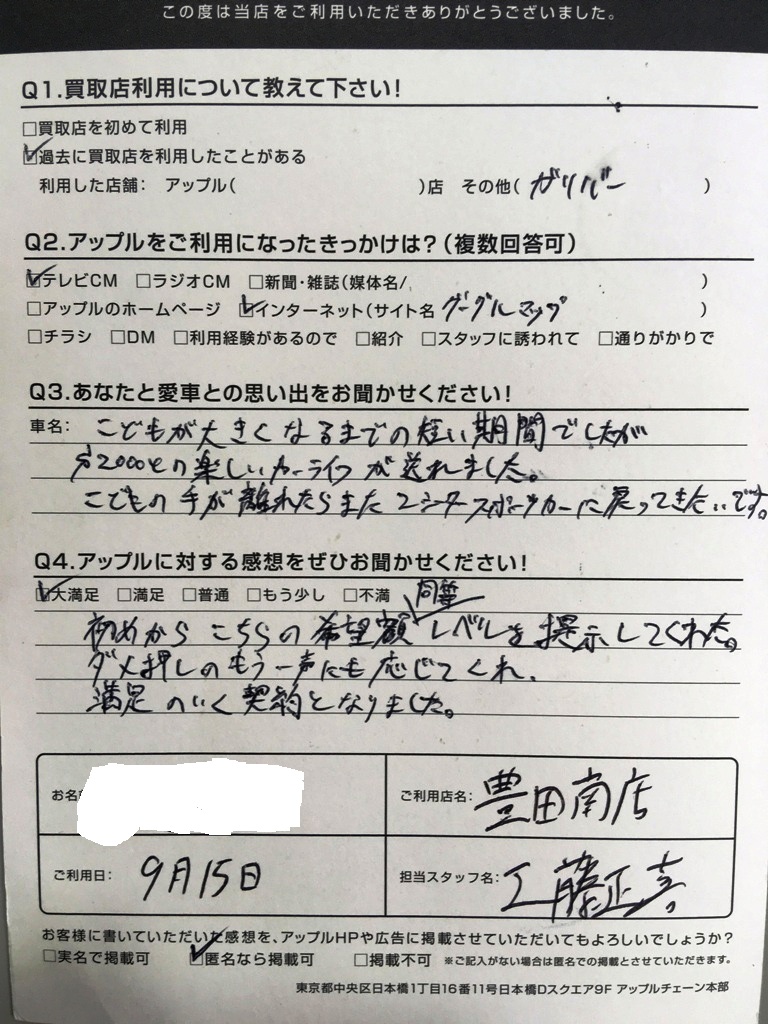 この度は当店をご利用いただきありがとうございました。
Q1.買取店利用について教えて下さい!
□買取店を初めて利用
☑過去に買取店を利用したことがある
利用した店舗: アップル( )店 その他( ガリバー )
Q2.アップルをご利用になったきっかけは?(複数回答可)
☑テレビCM □ラジオCM □新聞・雑誌(媒体名/ )
□アップルのホームページ ☑インターネット(サイト名 グーグルマップ )
□チラシ □DM □利用経験があるので □紹介 □スタッフに誘われて □通りがかりで
Q3.あなたと愛車との思い出をお聞かせください!
車名: こどもが大きくなるまでの短い期間でしたが
S2000との楽しいカーライフが送れました。
こどもの手が離れたらまた2シータースポーツカーに戻ってきたいです。
Q4.アップルに対する感想をぜひお聞かせください!
☑大満足 □満足 □普通 □もう少し □不満
同等
初めからこちらの希望額レベルを提示してくれた。
ダメ押しのもう一声にも応じてくれ、
満足のいく契約となりました。
お名
ご利用店名: 豊田南店
ご利用日: 9月15日
担当スタッフ名: 工藤正
お客様に書いていただいた感想を、アップルHPや広告に掲載させていただいてもよろしいでしょうか?
□実名で掲載可 ☑匿名なら掲載可 □掲載不可 ※ご記入がない場合は匿名での掲載とさせていただきます。
東京都中央区日本橋1丁目16番11号日本橋Dスクエア9F アップルチェーン本部